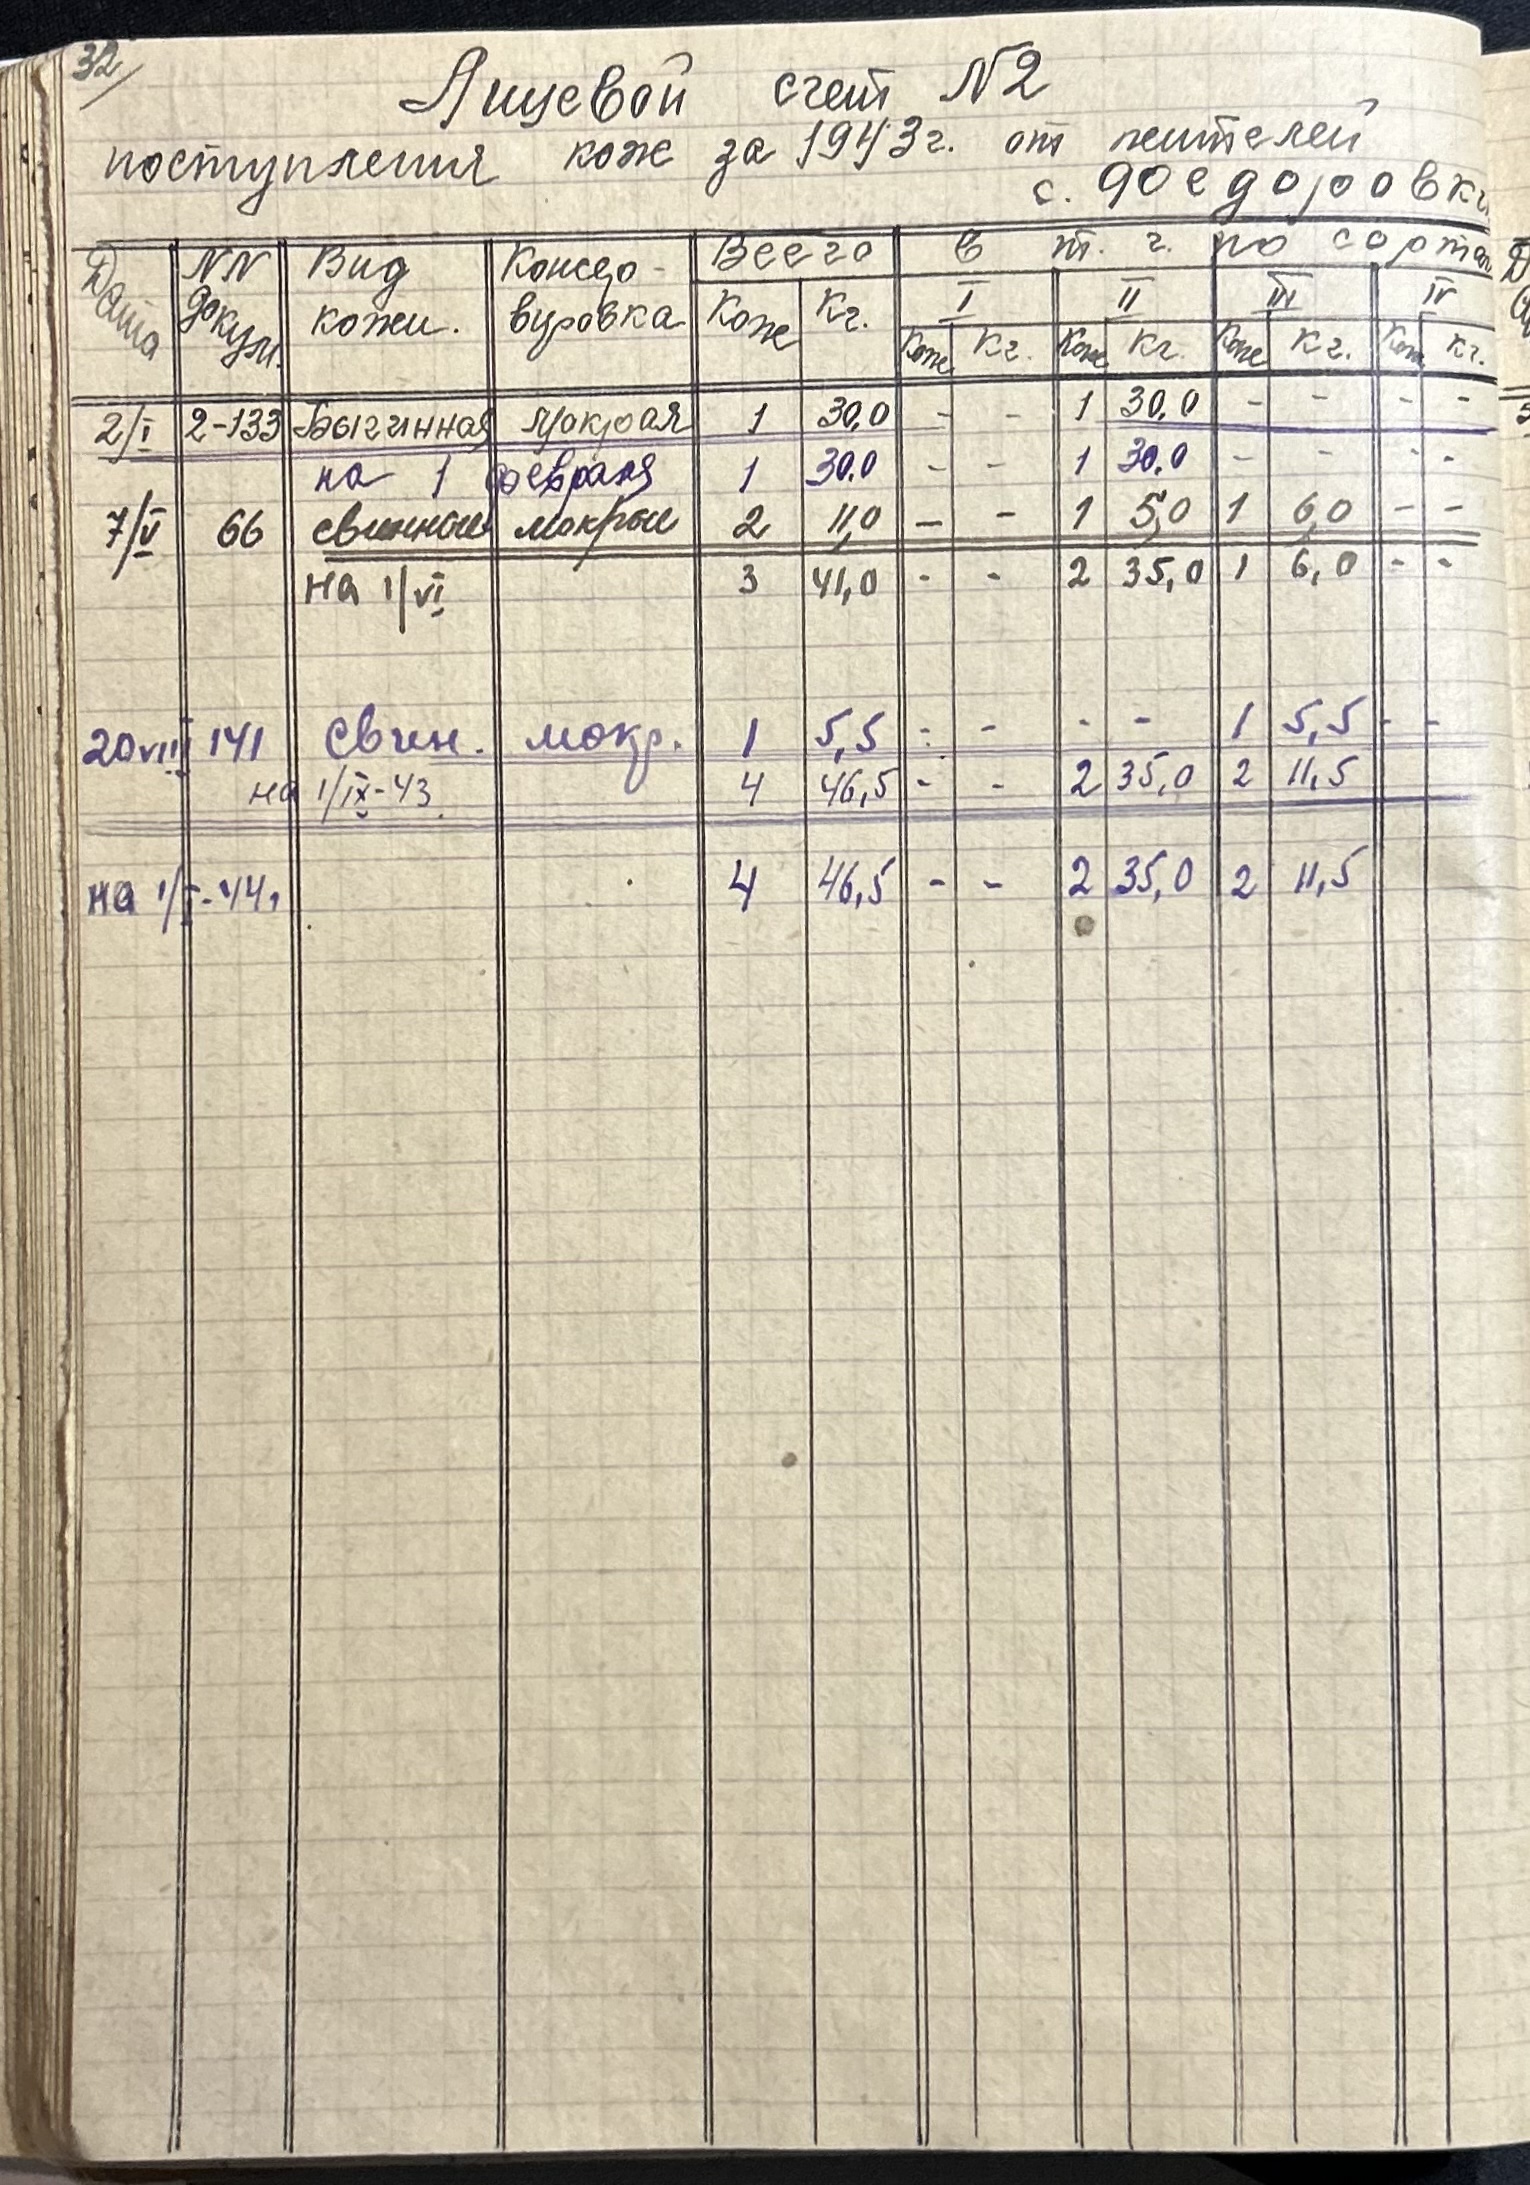 32/
Лицевой счет N2
поступления кож за 1943г. от жителей
с. Федоровки
Дата NN докум. Вид кожи. Консервировка Всего в т. ч. по сортам
I II III IV
Кож Кг. Кож Кг. Кож Кг. Кож Кг. Кож Кг.
2/I 2-133 мокрая 1 30,0 - - 1 30,0 - - - -
на 1 февраля 1 30,0 - - 1 30,0 - - - -
7/V 66 свинные мокрые 2 11,0 - - 1 5,0 1 6,0 - -
на 1/VI 3 41,0 - - 2 35,0 1 6,0 - -
20 VIII 141 Свин. мокр. 1 5,5 - - - - 1 5,5 - -
на 1/IX-43. 4 46,5 - - 2 35,0 2 11,5
на 1/I-44. 4 46,5 - - 2 35,0 2 11,5